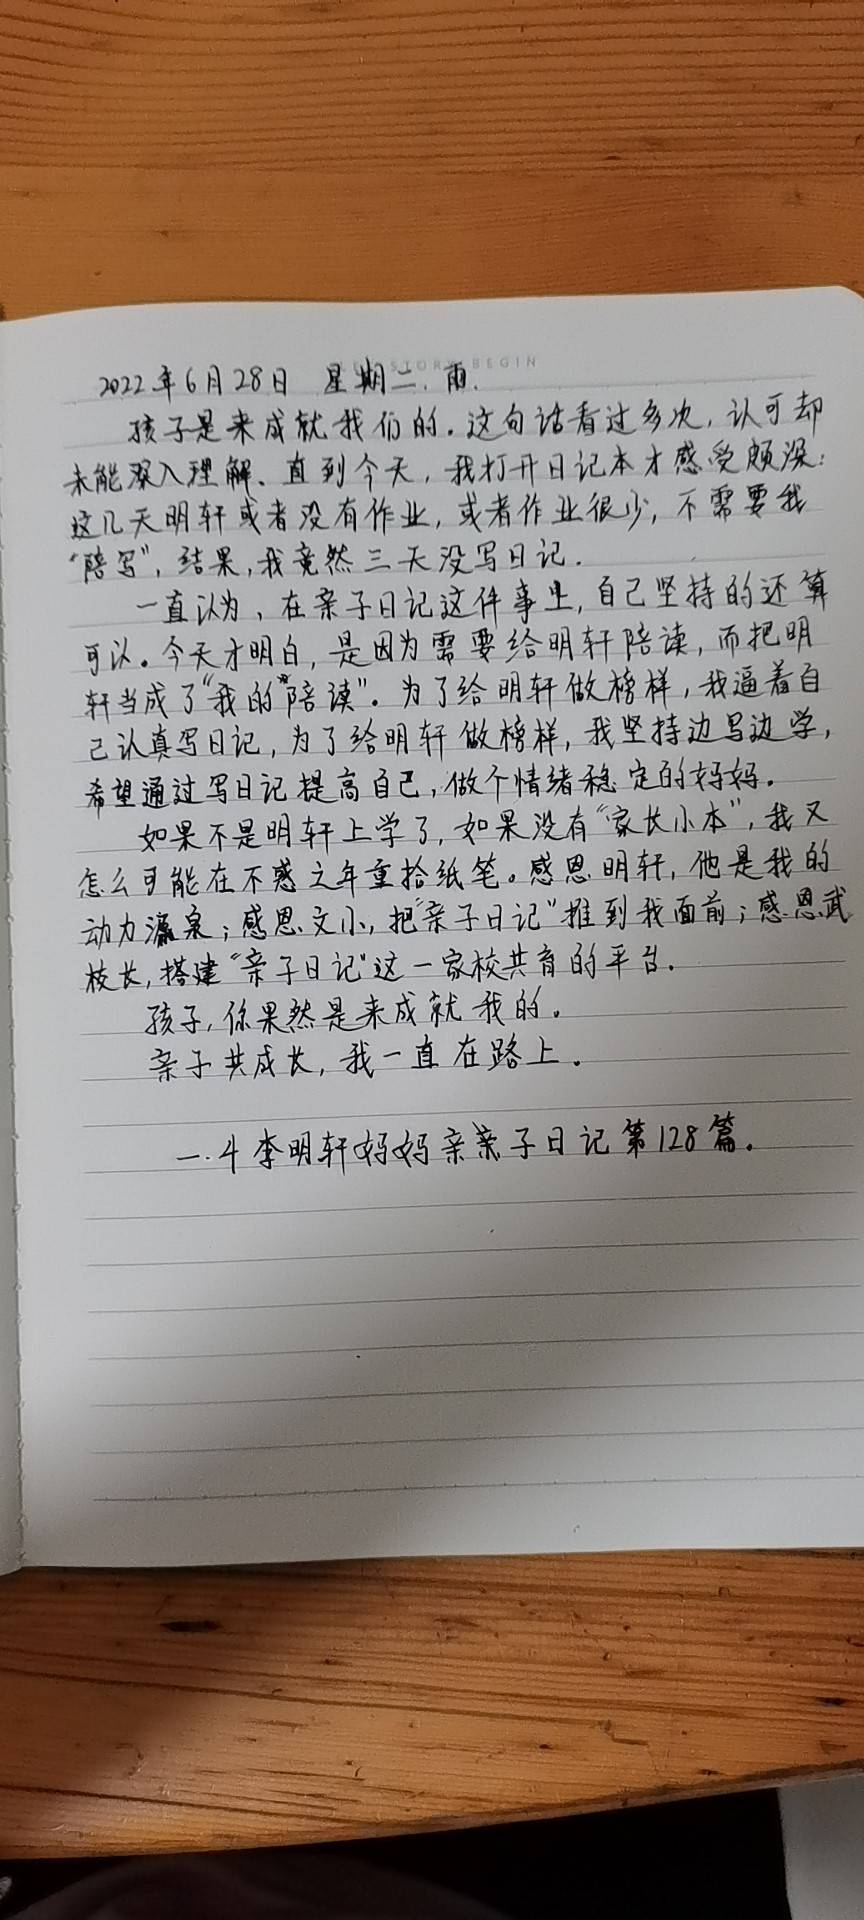 STORY BEGIN
2022年6月28日 星期二.雨.
孩子是来成就我们的.这句话看过多次,认可却
未能深入理解、直到今天,我打开日记本才感受颇深:
这几天明轩或者没有作业,或者作业很少,不需要我
“陪写”,结果,我竟然三天没写日记.
一直认为,在亲子日记这件事上,自己坚持的还算
可以。今天才明白,是因为需要给明轩陪读,而把明
轩当成了“我的“陪读”。为了给明轩做榜样,我逼着自
己认真写日记,为了给明轩做榜样,我坚持边写边学,
希望通过写日记提高自己,做个情绪稳定的妈妈。
如果不是明轩上学了,如果没有“家长小本”,我又
怎么可能在不惑之年重拾纸笔。感恩明轩,他是我的
动力源泉;感恩文小,把“亲子日记”推到我面前;感恩武
校长,搭建“亲子日记”这一家校共育的平台.
孩子,你果然是来成就我的。
亲子共成长,我一直在路上。
一.4李明轩妈妈亲亲子日记第128篇.